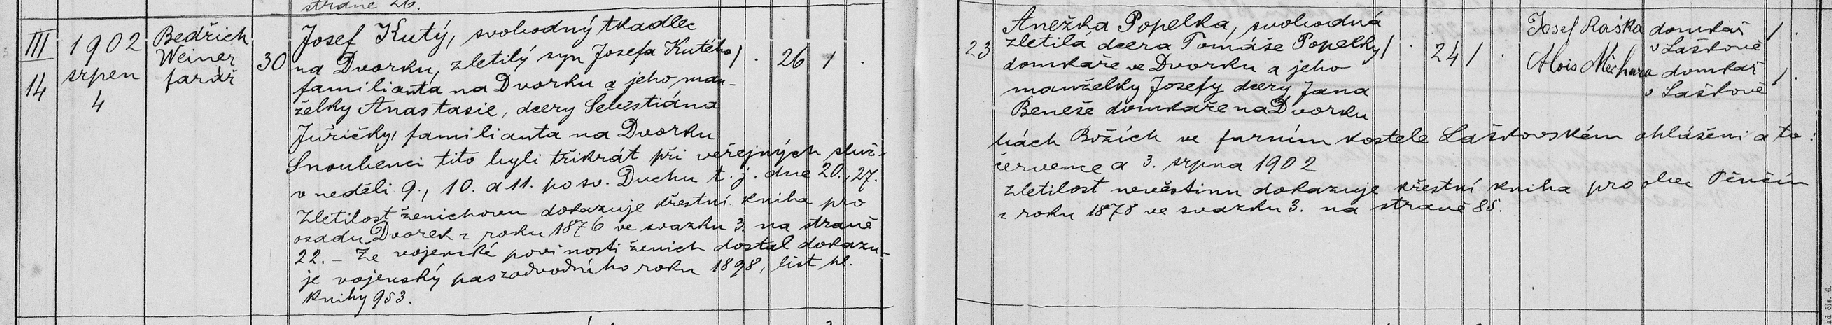 straně 26.
III
14
1902
srpen
4
Bedřich
Weiner
farář
30
Josef Kutý, svobodný tkadlec
na Dvorku, zletilý syn Josefa Kutého
familianta na Dvorku a jeho man-
želky Anastasie, dcery Sebestiána
Juřičky, familianta na Dvorku
Snoubenci tito byli třikrát při veřejných služ-
v neděli 9., 10. a 11. po sv. Duchu t. j. dne 20., 27.
Zletilost ženichovu dokazuje křestní kniha pro
osadu Dvorek z roku 1876 ve svazku 3. na straně
22. – Že vojenské povinosti ženich dostal dokazu-
je vojenský pas roku 1898, list hl.
knihy 953.
/ . 26 / .
23
Anežka Popelka, svobodná
zletilá dcera Tomáše Popelky
domkaře ve Dvorku a jeho
manželky Josefy dcery Jana
Beneše domkaře na Dvorku
bách Božích ve farním kostele Laškovském ohlášeni a to:
července a 3. srpna 1902
Zletilost nevěstinu dokazuje křestní kniha pro obec Pěnčín
z roku 1878 ve svazku 3. na straně 85.
/ . 24 / .
Josef Raška domkař
v Laškově
/ .
Alois domkař
v Laškově
/ .